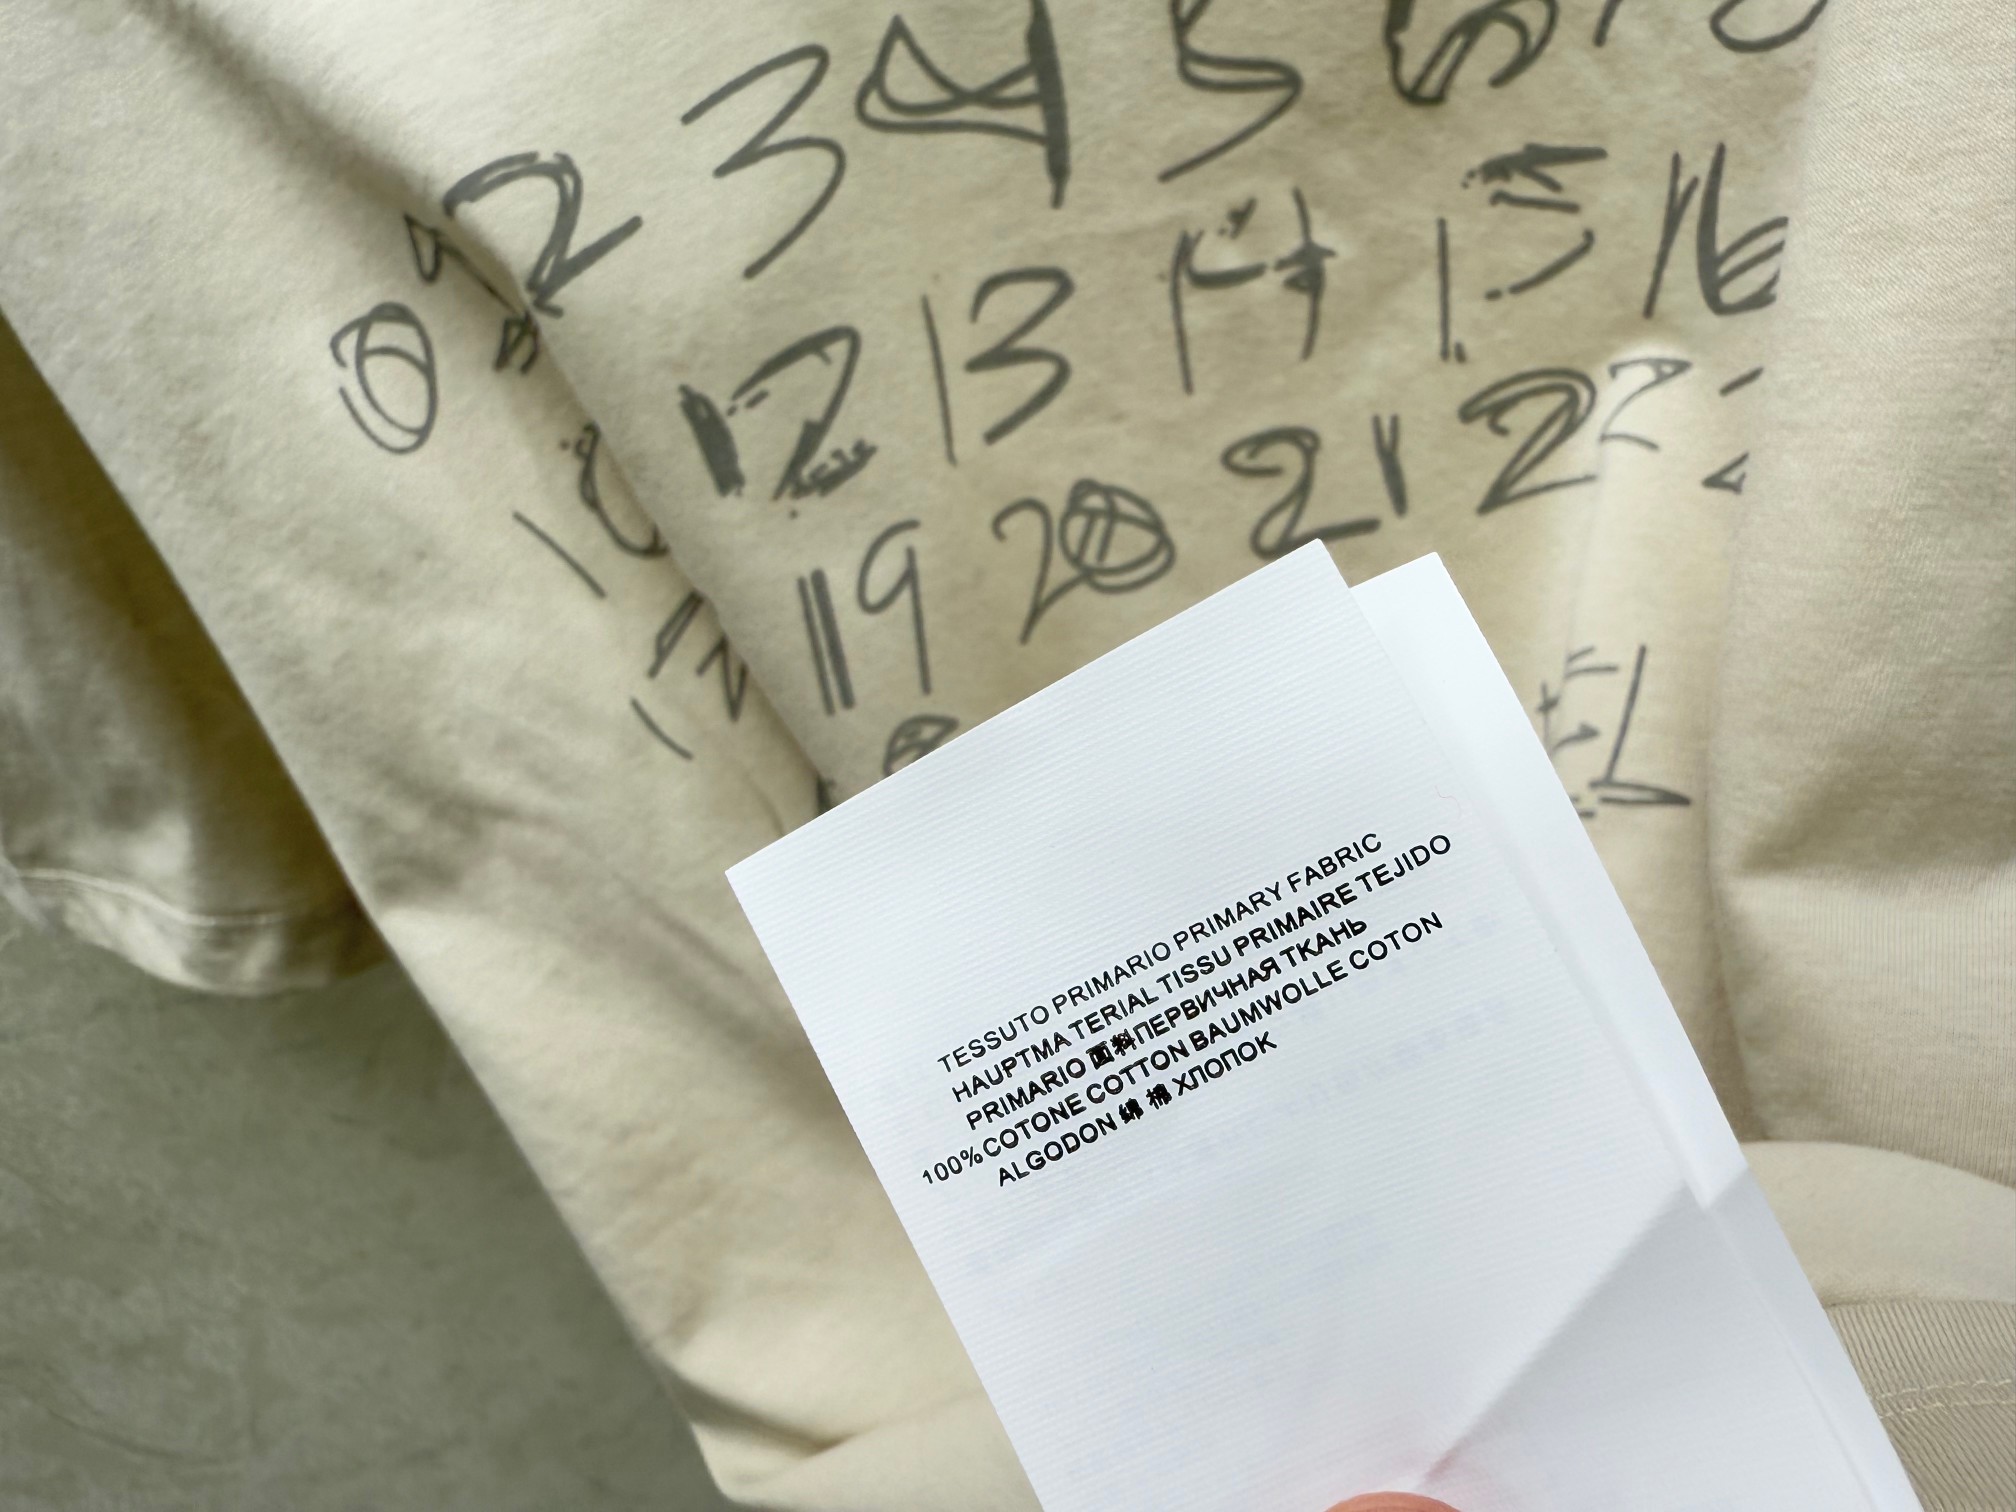 2 3 4 5 6
0
12 13 14 15 16
17 19 20 21 22
TESSUTO PRIMARIO PRIMARY FABRIC
HAUPTMA TERIAL TISSU PRIMAIRE TEJIDO
PRIMARIO 面料ПЕРВИЧНАЯ ТКАНЬ
100%COTONE COTTON BAUMWOLLE COTON
ALGODON 綿 棉 ХЛОПОК